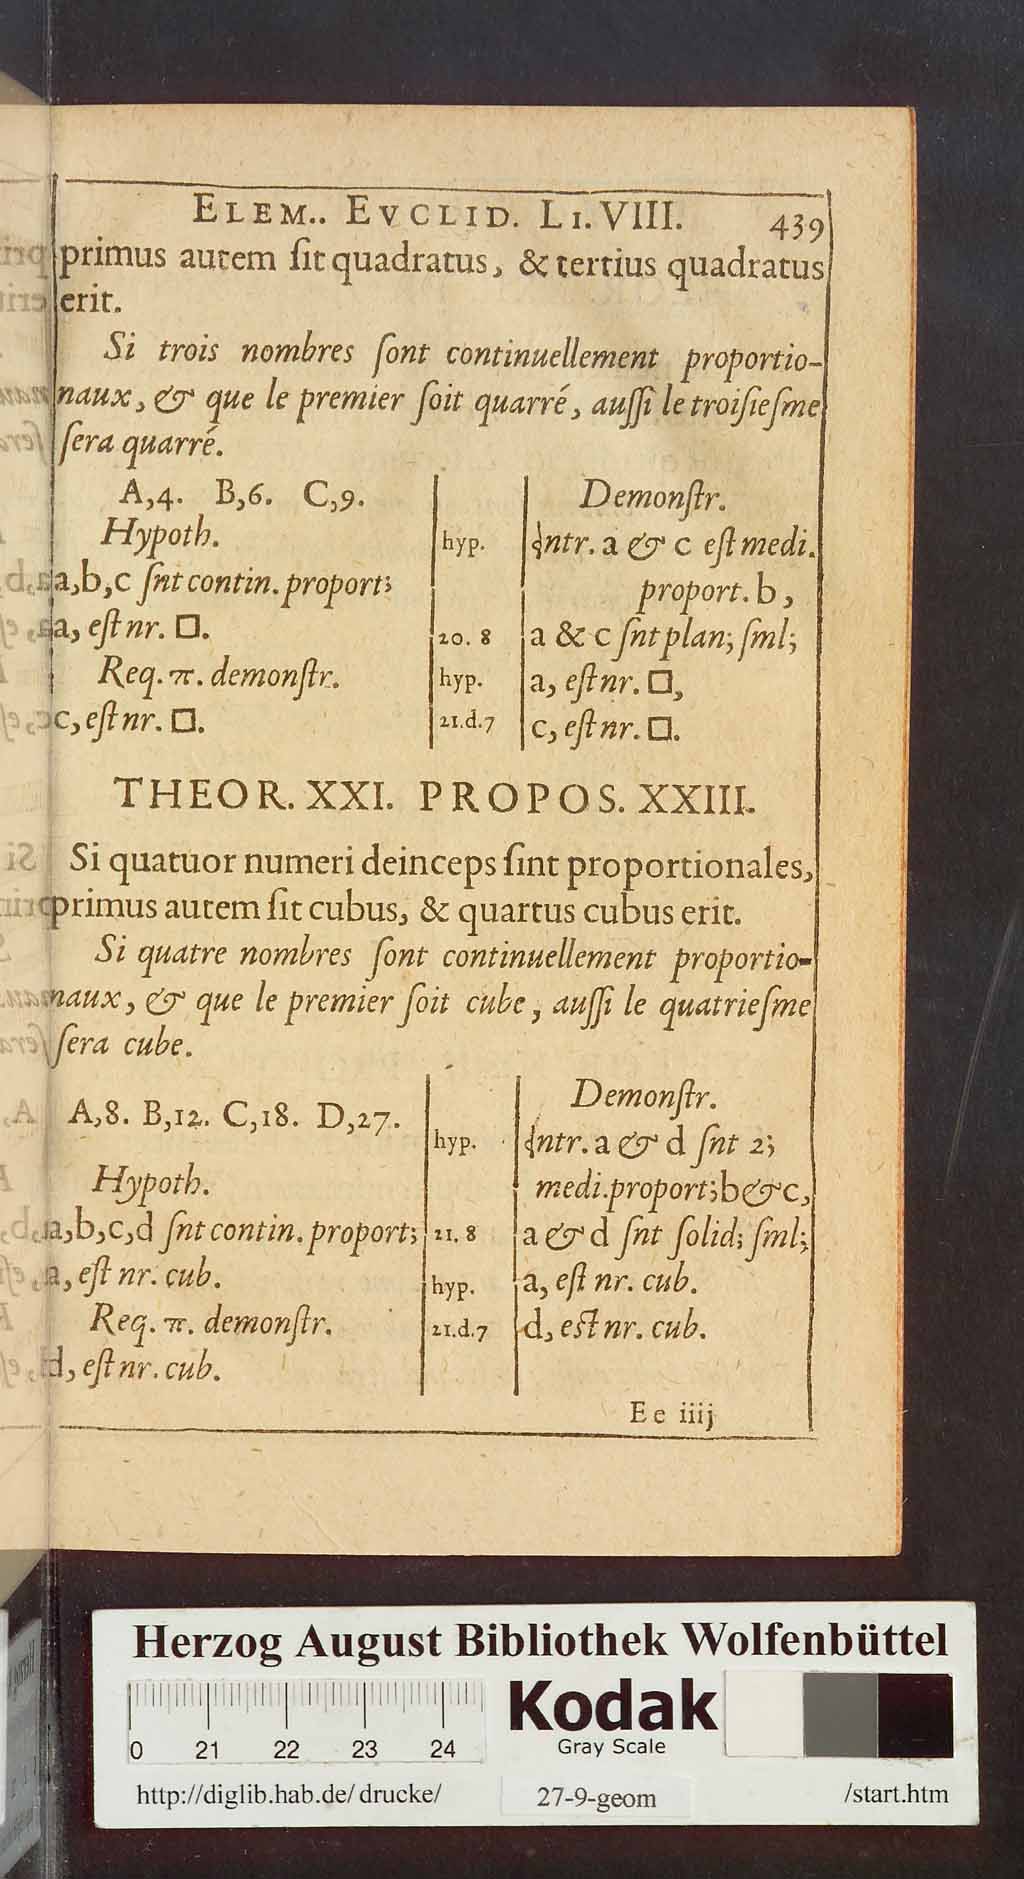 ELEM.. EVCLID. LI. VIII. 439
primus autem ſit quadratus, & tertius quadratus
erit.
Si trois nombres ſont continuellement proportio-
naux, & que le premier ſoit quarré, auſſi le troiſieſme
ſera quarré.
A,4. B,6. C,9.
Hypoth.
a,b,c ſnt contin. proport;
a, eſt nr. □.
Req. π. demonſtr.
c, eſt nr. □.
hyp.
20. 8
hyp.
21.d.7
Demonſtr.
Intr. a & c eſt medi.
proport. b,
a & c ſnt plan; ſml;
a, eſt nr. □,
c, eſt nr. □.
THEOR. XXI. PROPOS. XXIII.
Si quatuor numeri deinceps ſint proportionales,
primus autem ſit cubus, & quartus cubus erit.
Si quatre nombres ſont continuellement proportio-
naux, & que le premier ſoit cube, auſſi le quatrieſme
ſera cube.
A,8. B,12. C,18. D,27.
Hypoth.
a,b,c,d ſnt contin. proport;
a, eſt nr. cub.
Req. π. demonſtr.
d, eſt nr. cub.
hyp.
21. 8
hyp.
21.d.7
Demonſtr.
Intr. a & d ſnt 2;
medi. proport; b & c,
a & d ſnt ſolid; ſml;
a, eſt nr. cub.
d, eſt nr. cub.
Ee iiij
Herzog August Bibliothek Wolfenbüttel
0 21 22 23 24
Kodak
Gray Scale
http://diglib.hab.de/drucke/ 27-9-geom /start.htm